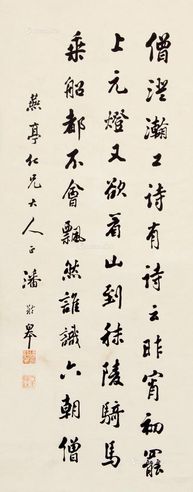 僧澄瀚工詩有詩云昨宵初罷
上元燈又欲看山到秣陵騎馬
乘船都不會飄然誰識六朝僧
燕亭仁兄大人正 潘齡皋